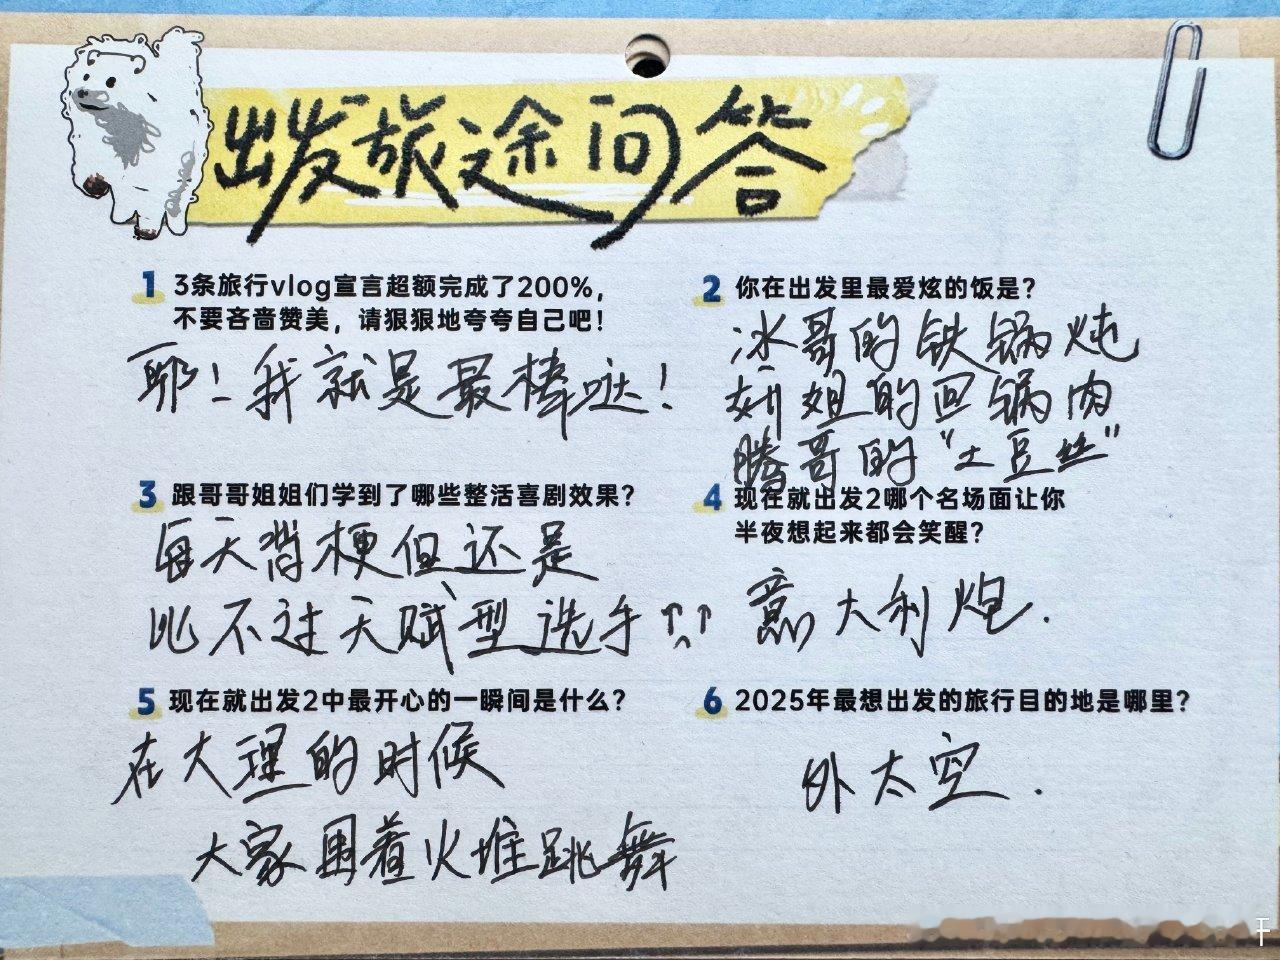 出发旅途问答
1 3条旅行vlog宣言超额完成了200%，
不要吝啬赞美，请狠狠地夸夸自己吧！
耶！我就是最棒哒！
2 你在出发里最爱炫的饭是？
冰哥的铁锅炖
妍姐的回锅肉
腾哥的“土豆丝”
3 跟哥哥姐姐们学到了哪些整活喜剧效果？
每天背梗但还是
比不过天赋型选手
4 现在就出发2哪个名场面让你
半夜想起来都会笑醒？
意大利炮.
5 现在就出发2中最开心的一瞬间是什么？
在大理的时候
大家围着火堆跳舞
6 2025年最想出发的旅行目的地是哪里？
外太空.